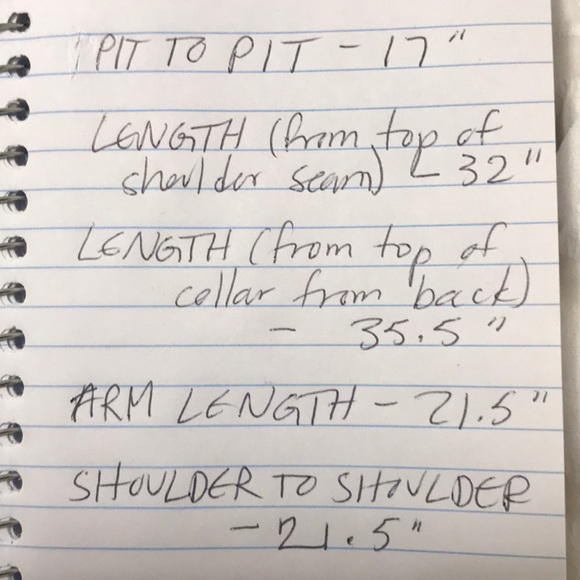 PIT TO PIT - 17"
LENGTH (from top of
shoulder seam) - 32"
LENGTH (from top of
collar from back)
- 35.5"
ARM LENGTH - 21.5"
SHOULDER TO SHOULDER
- 21.5"